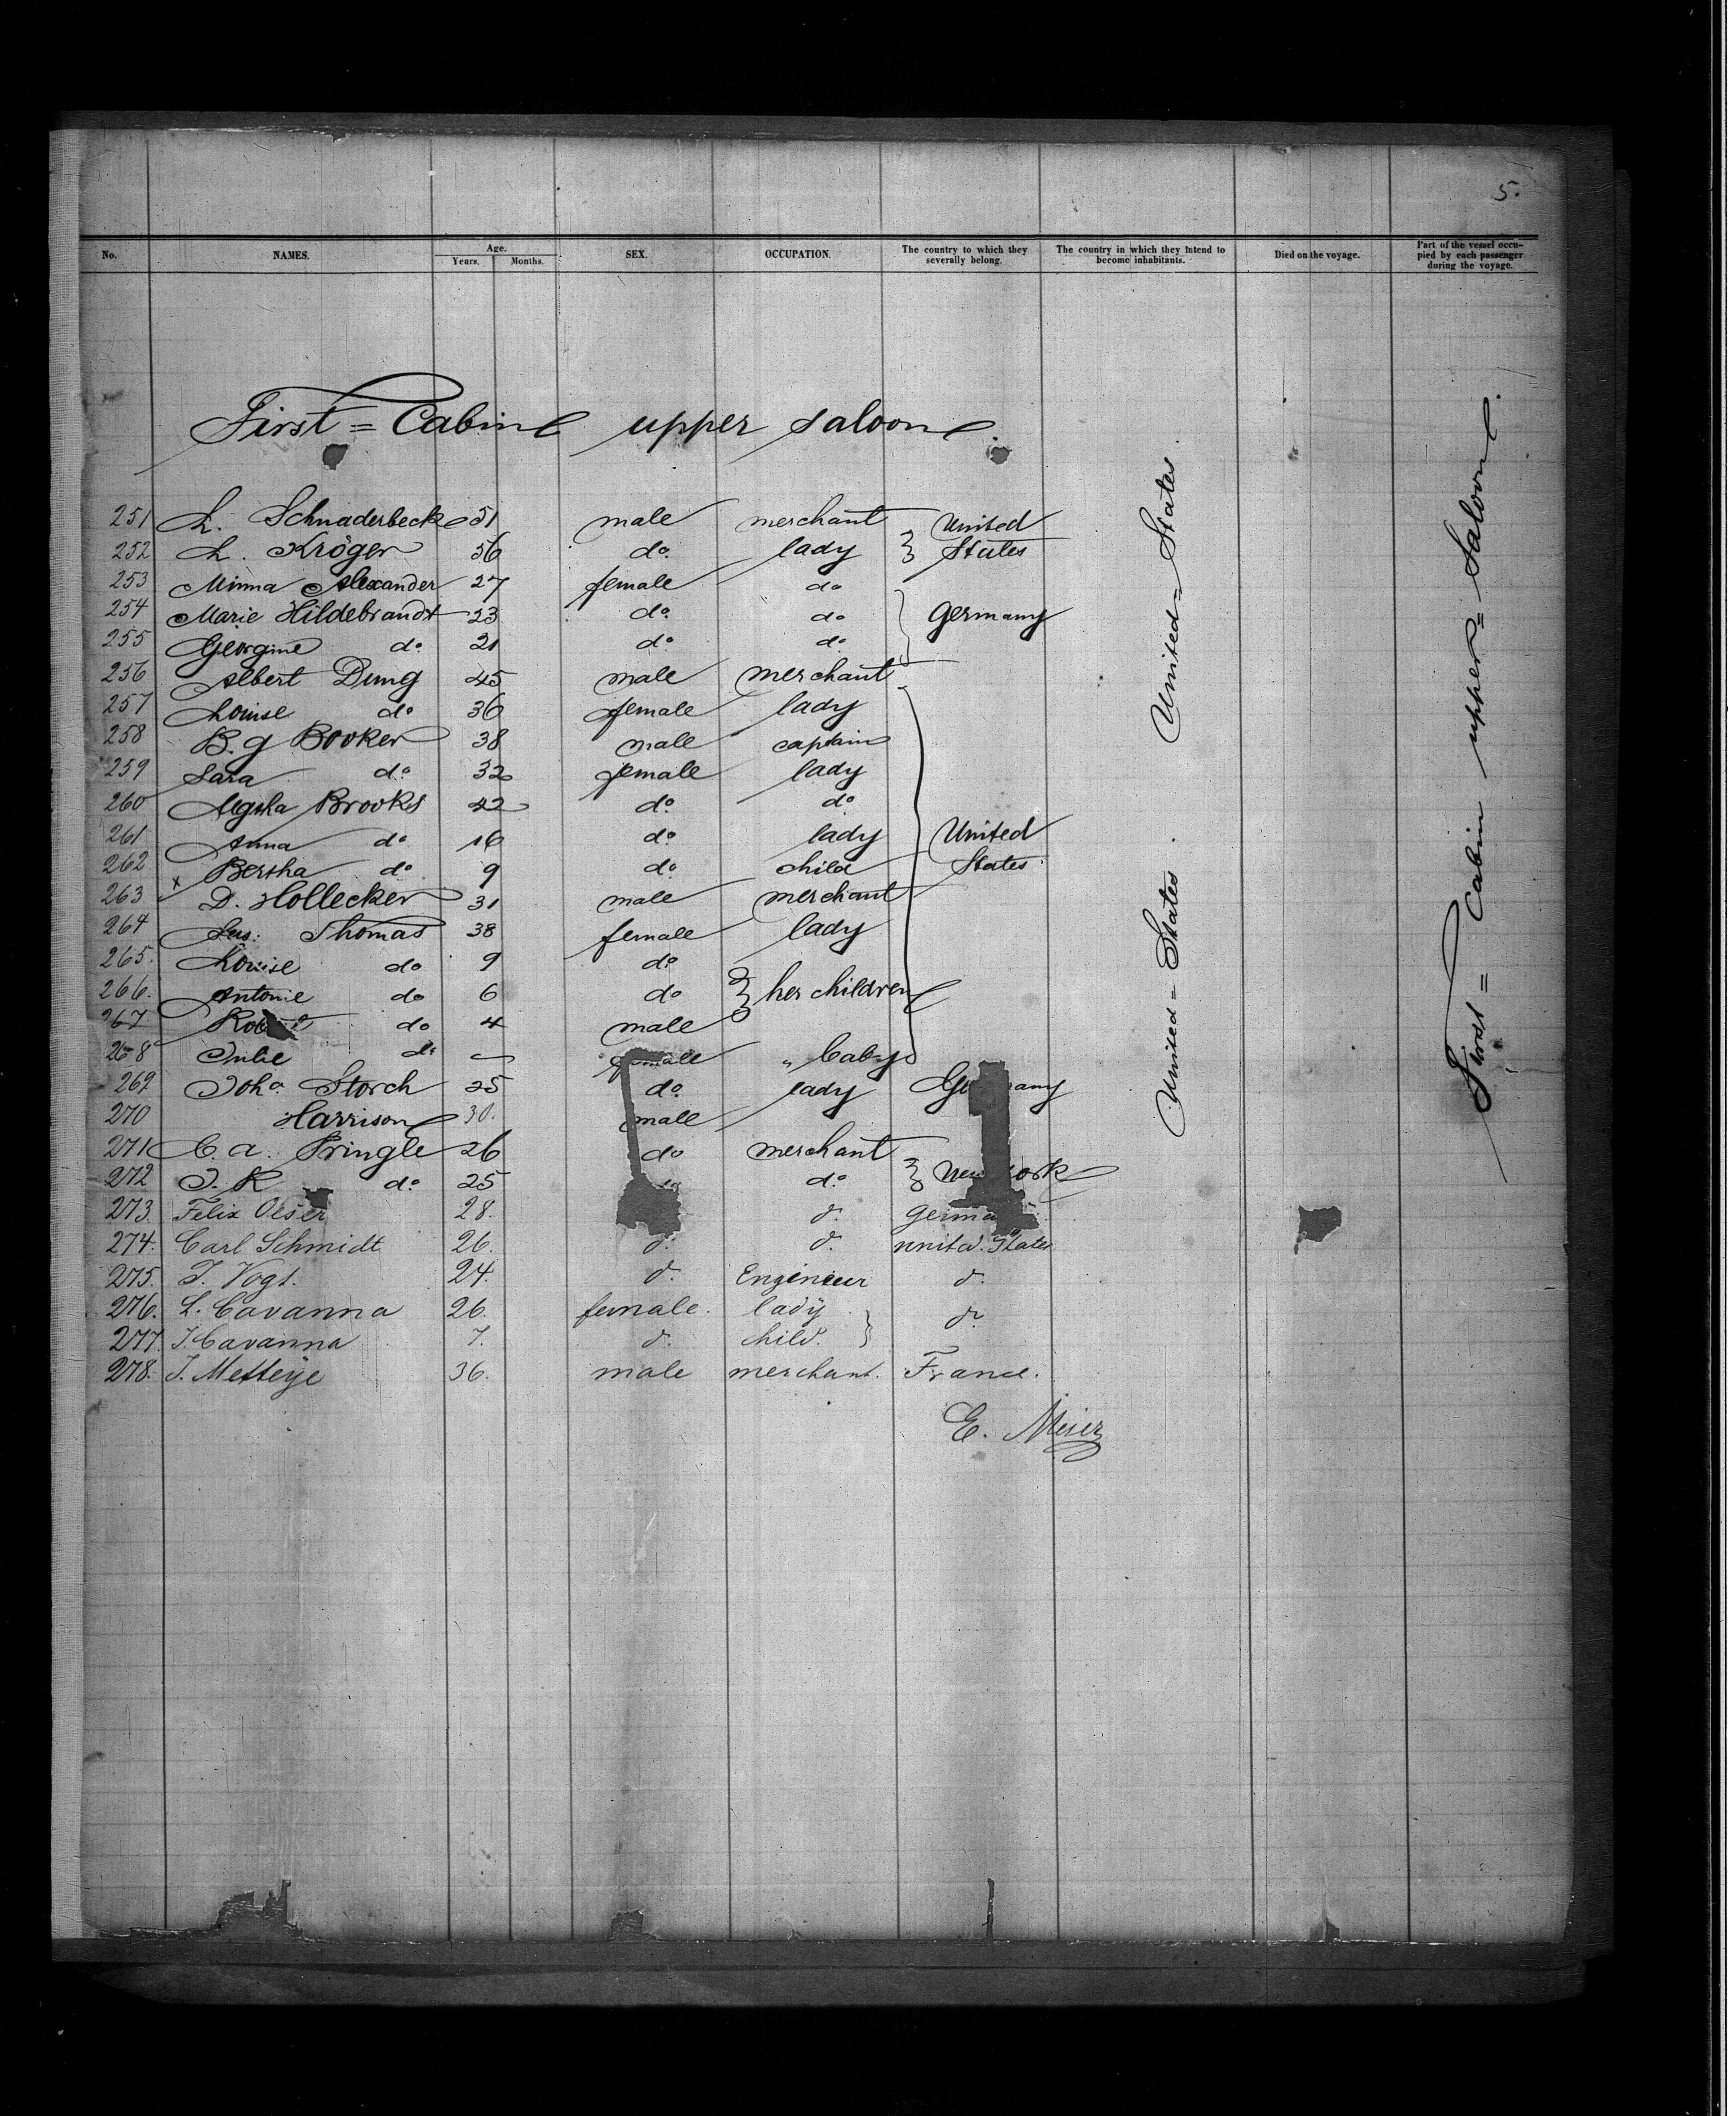 5.
No. NAMES. Age. Years. Months. SEX. OCCUPATION. The country to which they severally belong. The country in which they intend to become inhabitants. Died on the voyage. Part of the vessel occupied by each passenger during the voyage.
First = Cabin upper saloon.
251 L. Schnaderbeck 51 male merchant United
252 L. Kröger 56 do. lady States
253 Minna Alexander 27 female do
254 Marie Hildebrandt 23 do. do Germany
255 Georgine do. 21 do. do.
256 Albert Dung 45 male merchant
257 Louise do. 36 female lady
258 B. g Booker 38 male captain
259 Sara do. 32 female lady
260 Brooks 42 do. do
261 Anna do. 16 do. lady United
262 Bertha do. 9 do. child States
263 x D. Hollecker 31 male merchant
264 Thomas 38 female lady
265. Louise do 9 do
266. Antonie do 6 do her children
267 do 4 male
268 Julie do. female " baby
269 Joha. Storch 25 do. lady
270 Harrison 30. male
271 C. a. Pringle 26 do merchant
272 J. K do. 25 do.
273. Felix Oeser 28. d.
274. Carl Schmidt 26. d. d. united. States
275. J. Vogt. 24. d. Engineer d.
276. L. Cavanna 26. female. lady
277. J. Cavanna 7. d. child. d.
278. J. Metteye 36. male merchant. France.
E. Meier
United = States.
United = States.
First = Cabin upper = Saloon.